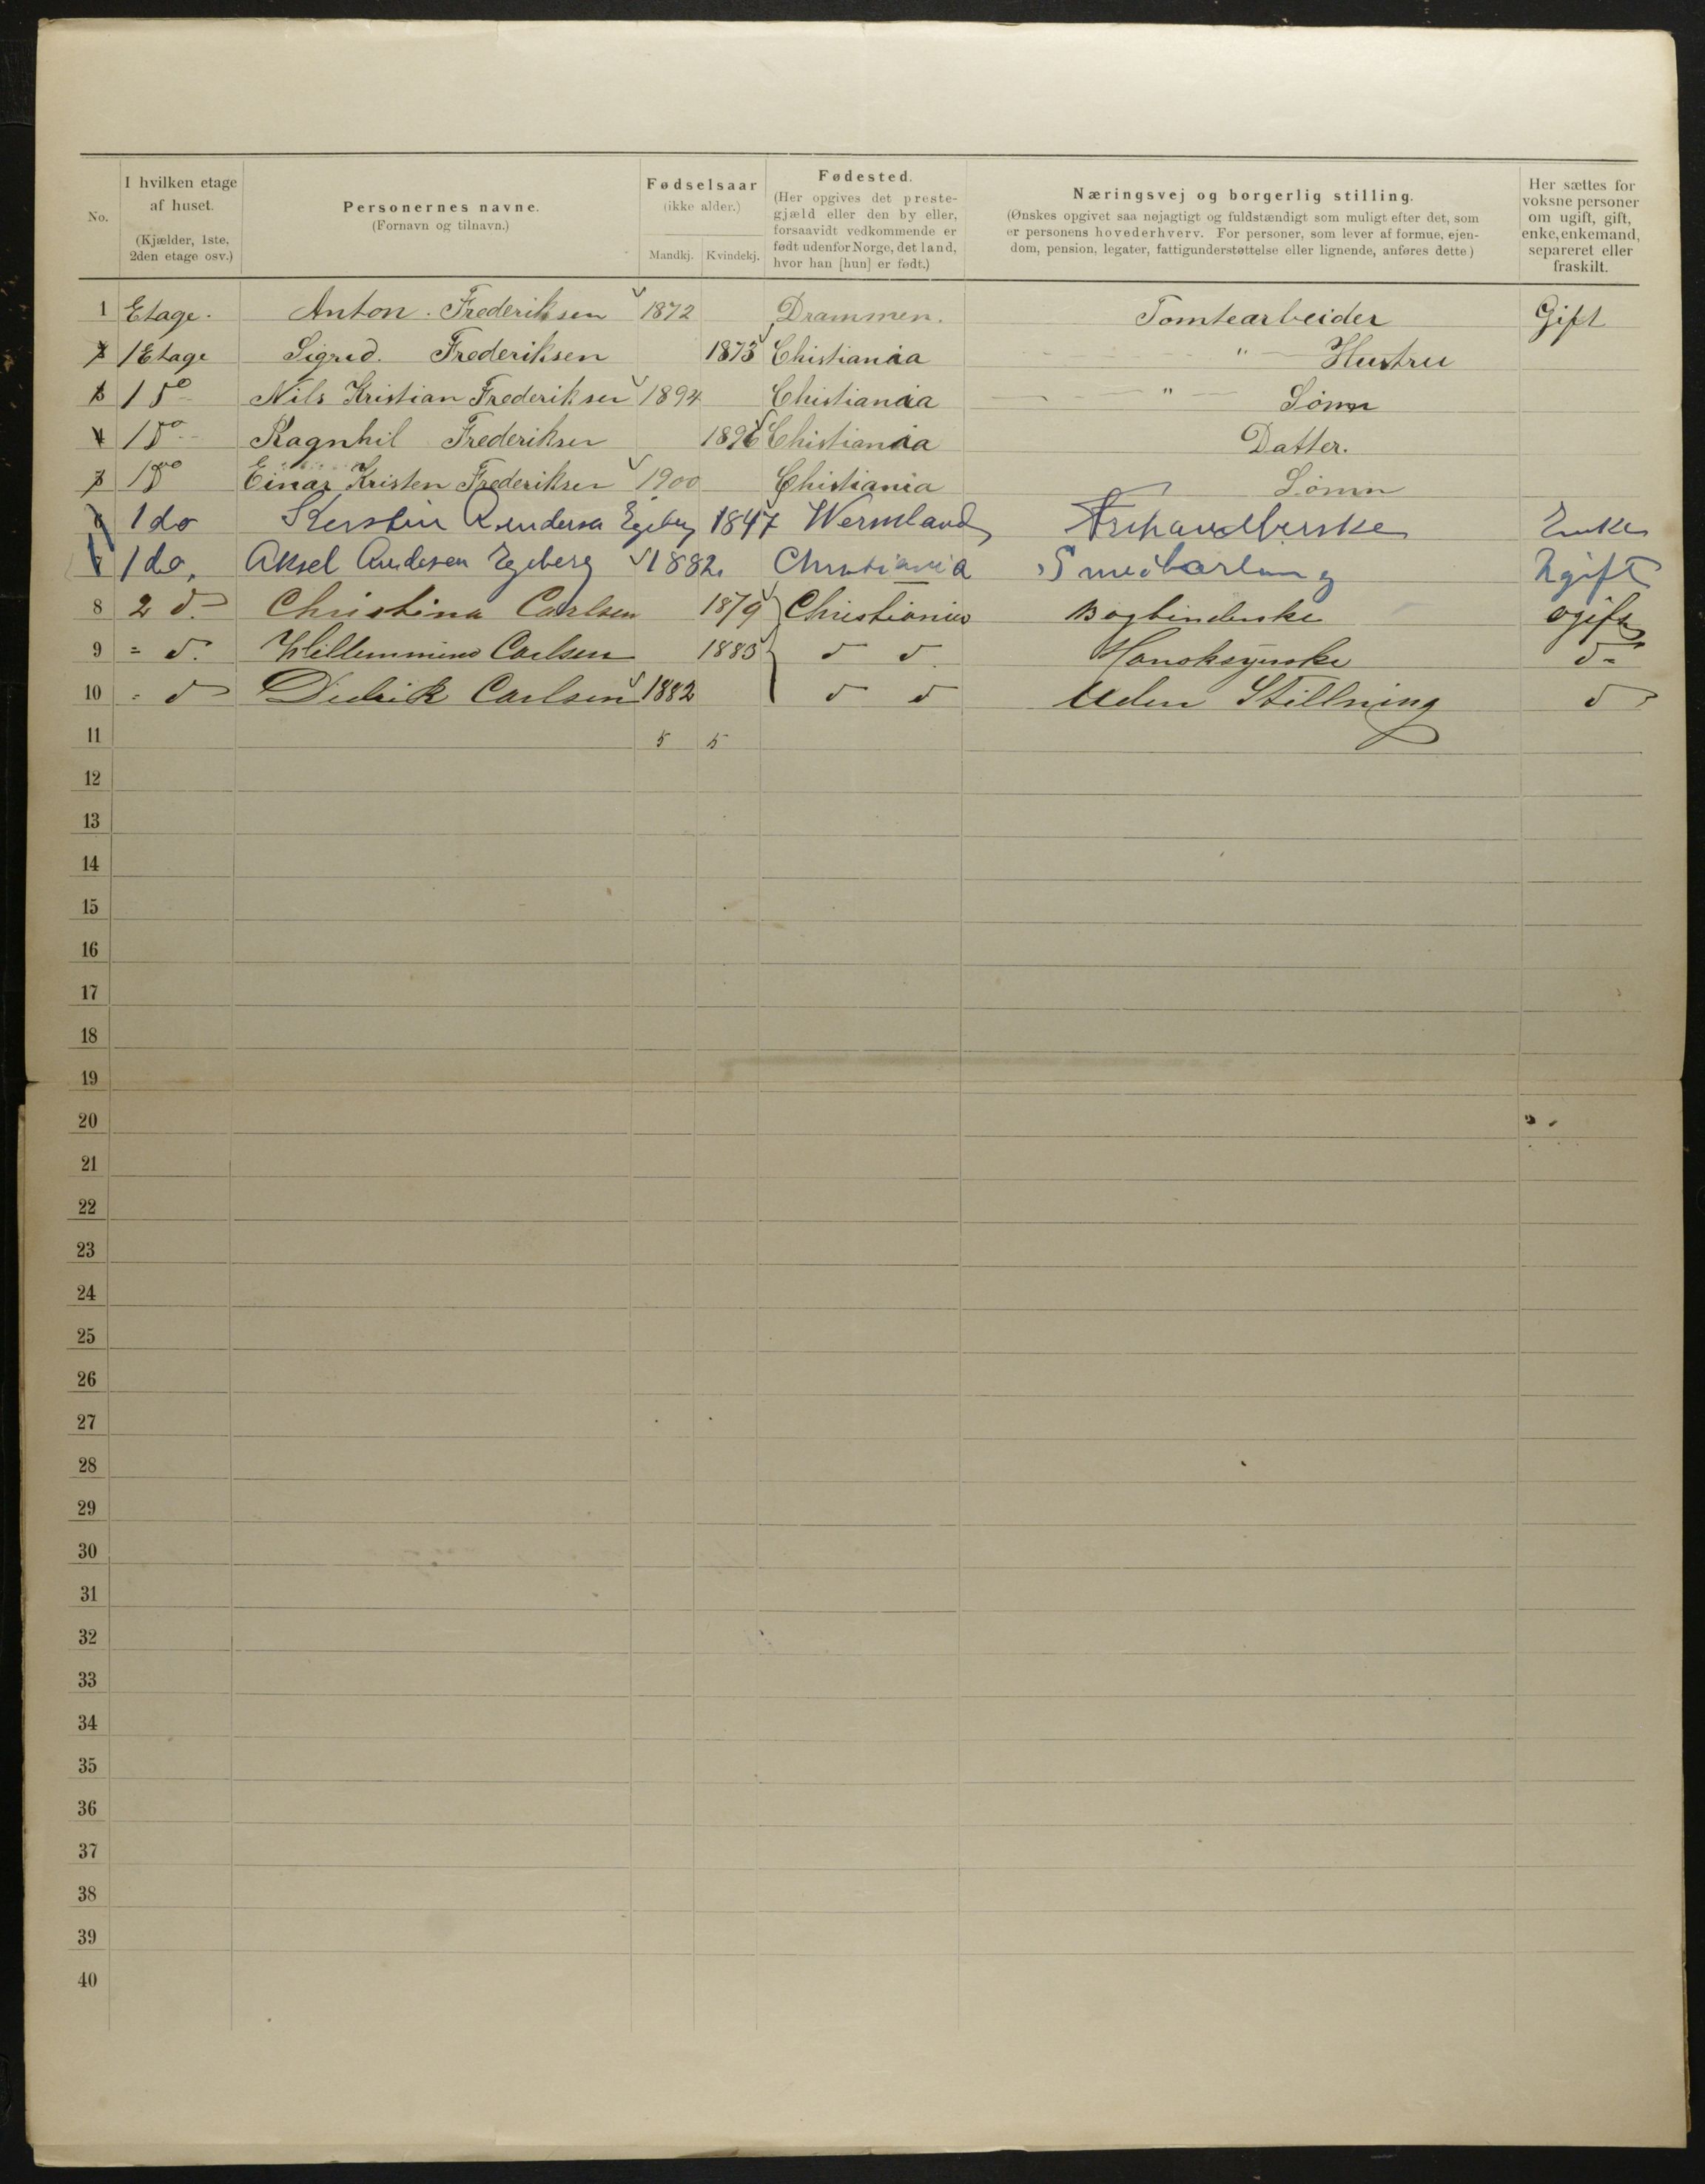 No.
I hvilken etage af huset. (Kjælder, 1ste, 2den etage osv.)
Personernes navne. (Fornavn og tilnavn.)
Fødselsaar (ikke alder.) Mandkj. Kvindekj.
Fødested. (Her opgives det prestegjæld eller den by eller, forsaavidt vedkommende er født udenfor Norge, det land, hvor han [hun] er født.)
Næringsvej og borgerlig stilling.
(Ønskes opgivet saa nøjagtigt og fuldstændigt som muligt efter det, som
er personens hovederhverv. For personer, som lever af formue, ejen-
dom, pension, legater, fattigunderstøttelse eller lignende, anføres dette)
Her sættes for voksne personer om ugift, gift, enke, enkemand, separeret eller fraskilt.
1 Etage. Anton. Frederiksen 1872 Drammen. Tomtearbeider Gift
1 Etage Sigrid. Frederiksen 1873 Chistiania " Hustru
1 do Nils Kristian Frederiksen 1894 Chistiania " Sønn
4 1 do Ragnhil Frederiksen 1896 Chistiania Datter.
1 do Einar Kristen Frederiksen 1900 Chistiania Sønn
1 do Kerstin Egeberg 1847 Wermland Enke
1 do, Aksel Andesen Egeberg 1882 Christiania Ugift
8 2 d Christina Carlsen 1879 Christiania Bogbinderske ogift
9 = d. Willemmine Carlsen 1883 d d. Hansksyerske d=
10 = d Didrik Carlsen 1882 d d Uden Stillning d
11 5 5
12
13
14
15
16
17
18
19
20
21
22
23
24
25
26
27
28
29
30
31
32
33
34
35
36
37
38
39
40